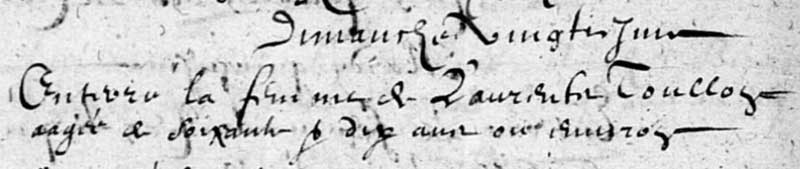 Dimanche Vingtiesme
Enterré la femme de Laurente Toullon
aagée de soixante & dix ans ou environ